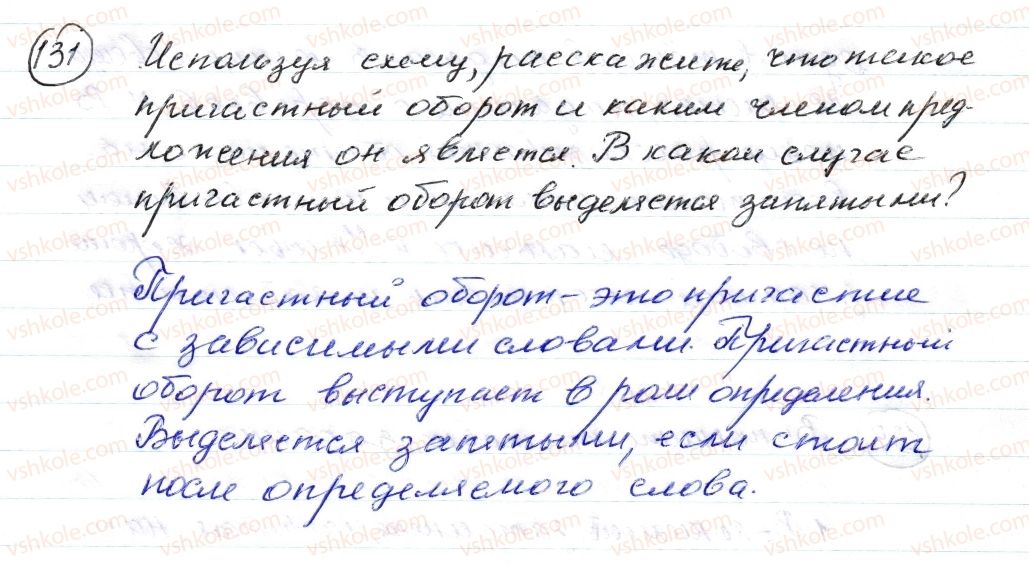 131 Используя схему, расскажите, что такое
причастный оборот и каким членом пред-
ложения он является. В каком случае
причастный оборот выделяется запятыми?
Причастный оборот – это причастие
с зависимыми словами. Причастный
оборот выступает в роли определения.
Выделяется запятыми, если стоит
после определяемого слова.